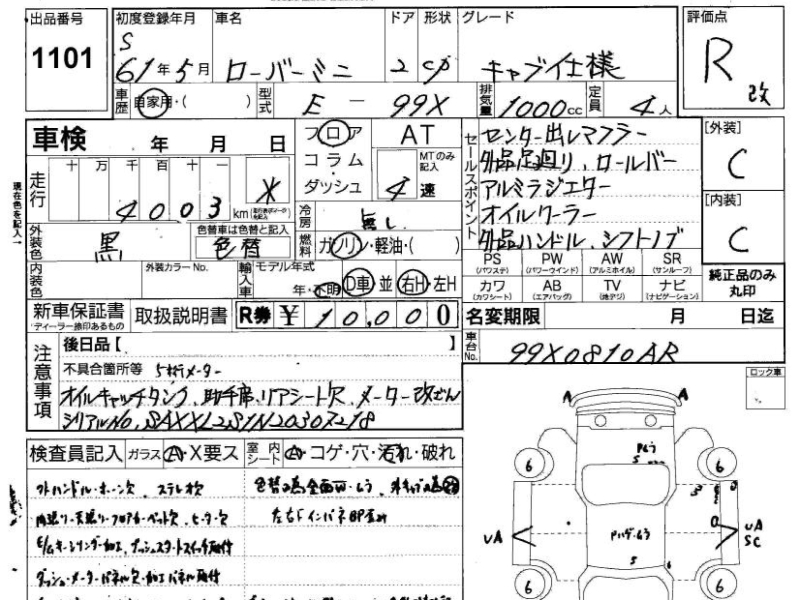 出品番号 初度登録年月 車名 ドア 形状 グレード 評価点
1101 S 61年 5月 ローバーミニ 2 CP キャブイ仕様 R 改
車歴 自家用・( ) 型式 E - 99X 排気量 1000cc 定員 4人
車検 年 月 日 フロア AT
コラム MTのみ記入
ダッシュ 4速
セールスポイント
センター出しマフラー
外品足廻り、ロールバー
アルミラジエター
オイルクーラー
外品ハンドル、シフトノブ
[外装]
C
[内装]
C
現在色を記入→
走行 十 万 千 百 十 一
4003 km
冷房 無し
外装色 黒 色替車は色替と記入 色替 燃料 ガソリン・軽油・( )
内装色 外装カラーNo. 輸入車 モデル年式 年・不明 D車 並 右H・左H
PS (パワステ) PW (パワーウインド) AW (アルミホイル) SR (サンルーフ)
カワ (カワシート) AB (エアバッグ) TV (地デジ) ナビ (ナビゲーション)
純正品のみ丸印
新車保証書 ディーラー捺印あるもの 取扱説明書 R券 ¥ 10,000
名変期限 月 日迄
車台No. 99X0810AR
注意事項 後日品【 】
不具合箇所等 5桁メーター
オイルキャッチタンク、助手席、リアシート欠、メーター改ざん
シリアルNo, SAXXL2S1N20307218
ロック車
検査員記入 ガラス A・X要ス 室内シート A・コゲ・穴・汚れ・破れ
外ハンドル・ホーン欠、ステレオ欠
内張り・天張り・フロアカーペット欠、ヒーター欠
左右Fインパネ
E/Gキーシリンダー加工、プッシュスタートスイッチ取付
ダッシュ・メーターパネル欠・加工パネル取付
A A
6 6
UA UA
SC
5
6 6